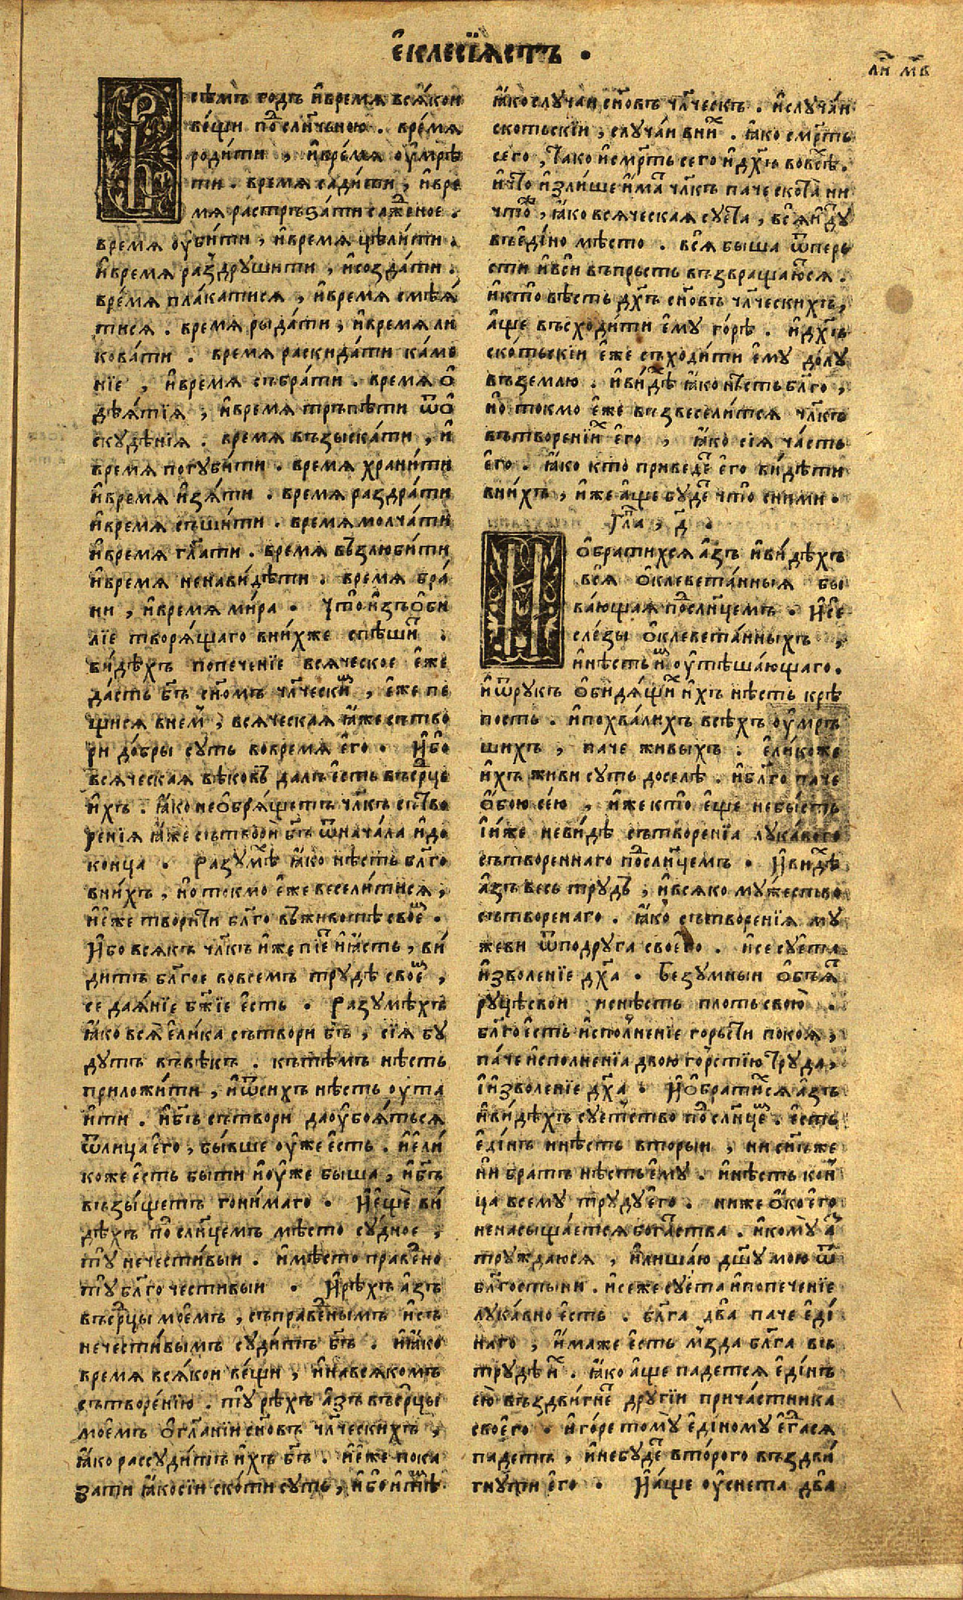 е҆клесїѧстъ .
ли м҃в
сѣмъ годъ и҆время всѧ́кои
ве́щи по́ слн҃чьною . вре́мѧ
роди́ти , и҆вре́мѧ оу҆мре́
ти . время сади́ти , и҆вре
мѧ растръза́ти сажⷣеное .
время оу҆би́ти , и҆время цѣли́ти .
и҆время раздрꙋши́ти , и҆созда́ти .
вре́мѧ пла́катисѧ , и҆время смѣѧ́
тисѧ . время рыда́ти , и҆время ли
кова́ти . время раскида́ти ка́ме
нїе , и҆время събра́ти . время о҆
дѣѧ́тїѧ , и҆время тръпѣти ѿо҆
скꙋде́нїѧ . время възыска́ти , и҆
время погꙋби́ти . время храни́ти
и҆время и҆зѧ́ти . время раздра́ти
и҆время съши́ти . время молча́ти
и҆время гл҃ати . время възлюби́ти
и҆время ненави́дѣти . время бра́
ни , и҆время ми́ра . Что̀ и҆зъо҆би
лїе творѧ́щаго вни́хже спѣши́тⷭ .
ви́дѣхъ попече́нїе всѧ́ческое е҆же
дастъ бг҃ъ сн҃омъ чл҃ческиⷨ , е҆же пе
щисѧ внеⷨ , всѧ́ческаѧ ꙗ҆же сътво
ри до́бры сꙋть вовремѧ е҆го . И҆бо
всѧ́ческаѧ вѣковъ далъ е҆сть въсрⷣце
и҆хъ . ꙗ҆ко нео҆брѧ́щетъ чл҃къ сътво
ре́нїѧ ꙗ҆же сътвори бг҃ъ ѿнача́ла и҆до
конца . Разꙋмѣⷯ ꙗ҆ко нѣсть бл҃го
вни́хъ , но токмо е҆же весели́тисѧ ,
и҆е҆же твори́ти бл҃го въживотѣ своеⷨ .
И҆бо всѧкъ чл҃къ и҆же пїеⷮ и҆ꙗ҆сть , ви́
дитъ бл҃гое вовсемъ трꙋдѣ своеⷨ ,
се даѧ́нїе бж҃їе е҆сть . Разꙋмѣхъ
ꙗ҆ко всѧ̀ е҆лика сътвори бг҃ъ , сїѧ бꙋ
дꙋтъ въвѣкъ . къти́мъ нѣсть
приложи́ти , и҆ѿси́хъ нѣсть оу҆та
ити . и҆бг҃ъ сътвори даоу҆боѧ́тьсѧ
ѿлица е҆го , бы́вше оу҆же е҆сть . и҆е҆ли́
коже е҆сть быти и҆оу҆же быша , и҆бг҃ъ
възы́щетъ гони́маго . И҆е҆ще́ ви́
дѣхъ поⷣ слн҃цемъ мѣсто сꙋдное ,
тꙋ̀ нечести́выи . и҆мѣсто пра́веⷣно
тꙋ̀ бл҃гочести́выи . И҆рѣхъ а҆зъ
въсрⷣцы моемъ , съпра́веⷣнымъ и҆съ
нечести́вымъ сꙋди́тъ бг҃ъ . и҆ꙗ҆ко
время всѧ́кои ве́щи , и҆навсѧкомъ
сътворе́нїю . тꙋ̀ рѣхъ а҆зъ въсрⷣцы
моемъ о҆гл҃анїи сн҃овъ чл҃ческихъ ,
ꙗ҆ко рассꙋди́тъ и҆хъ бг҃ъ . и҆е҆же пока
зати ꙗ҆косїи ско́ти сꙋть , и҆бо и҆тѣⷨ
ꙗ҆ко слꙋчаи сн҃овъ чл҃ческъ . и҆слꙋчаи
ско́тьскїи , слꙋчаи ви́иⷨ . ꙗ҆ко сме́рть
сего , та́ко и҆сме́рть сего и҆дх҃ъ вовсѣⷯ .
и҆что и҆зли́ше и҆маⷮ чл҃къ паче ско́та ни
что́ , ꙗ҆ко всѧ́ческаѧ сꙋ́ета , всѧ и҆дꙋⷮ
въе҆ди́но мѣсто . всѧ̀ быша ѿперь
сти и҆всѧ̀ въпрьсть възвраща́ютсѧ .
и҆кто вѣсть дх҃ъ сн҃овъ чл҃ческихъ ,
а҆ще въсхо́дитъ е҆мꙋ горѣ . и҆дх҃ъ
ско́тьскїи е҆же съхо́дитъ е҆мꙋ долꙋ
въземлю . и҆ви́дѣⷯ ꙗ҆ко нѣсть бл҃го ,
но токмо е҆же възвесели́тсѧ чл҃къ
вътворе́нїиⷯ е҆го , ꙗ҆ко сїѧ ча́сть
е҆го . ꙗ҆ко кто приведеⷮ е҆го ви́дѣти
вни́хъ , и҆же а҆ще бꙋдеⷮ что сни́ми .
Гла , д҃ .
И о҆брати́хсѧ а҆зъ и҆ви́дѣхъ
всѧ̀ о҆клевета́нныѧ бы
ва́ющаѧ поⷣслн҃цемъ . И҆се
сле́зы о҆клевета́нныхъ ,
и҆нѣсть и҆мⷨ оу҆тѣша́ющаго .
и҆ѿрꙋкъ о҆би́дѧщиⷯ и҆хъ нѣсть крѣ
пость . и҆похвали́хъ всѣхъ оу҆мръ
шихъ , паче живы́хъ . е҆ли́коже
и҆хъ живи сꙋть доселѣ . и҆бл҃го паче
о҆бою сею , и҆же кто̀ е҆ще небы́сть
і҆и҆же неви́дѣ сътворе́нїа лꙋка́вого
сътворе́ннаго поⷣслн҃цемъ . И҆ви́дѣⷯ
а҆зъ весь трꙋдъ , и҆всѧко мꙋжество
сътворе́наго . ꙗ҆ко сътворе́нїѧ мꙋ
жеви ѿподрꙋга своего . и҆се сꙋета
и҆зволе́нїе дх҃а . Безꙋ́мныи о҆бъѧⷮ
рꙋцѣсвои и҆снѣсть пло́ть свою̀ .
бл҃го е҆сть и҆сполне́нїе го́рьсти поко́ѧ ,
па́че и҆сполне́нїа двою го́рстїю трꙋда ,
і҆и҆зволе́нїе дх҃а . И҆о҆брати́хсѧ а҆зъ
и҆ви́дѣхъ сꙋе́тство поⷣ слн҃цеⷨ . е҆сть
е҆ди́нъ и҆нѣсть вторы́и , ни сн҃ъже
ни братъ нѣсть е҆мꙋ . и҆нѣсть кон
ца всемꙋ трꙋдꙋ е҆го . ниже о҆ко е҆го
ненасыща́етсѧ бога́тства . и҆комꙋ аⷥ
трꙋжда́юсѧ , и҆лиша́ю дш҃ꙋ мою ѿ
бл҃госты́ни . и҆сеже сꙋета и҆попече́нїе
лꙋка́вно е҆сть . бл҃га два паче е҆ди́
наго , и҆маже е҆сть мъзда бл҃га въ
трꙋдѣ иⷯ . ꙗ҆ко а҆ще паде́тсѧ е҆ди́нъ
е҆ю възви́гнеⷮ дрꙋгїи прича́стника
своего . и҆го́ре томꙋ̀ е҆ди́номꙋ е҆гда́сѧ
паде́тъ , и҆небꙋдеⷮ второго въздви́
гнꙋти е҆го . И҆а҆ще оу҆снета два